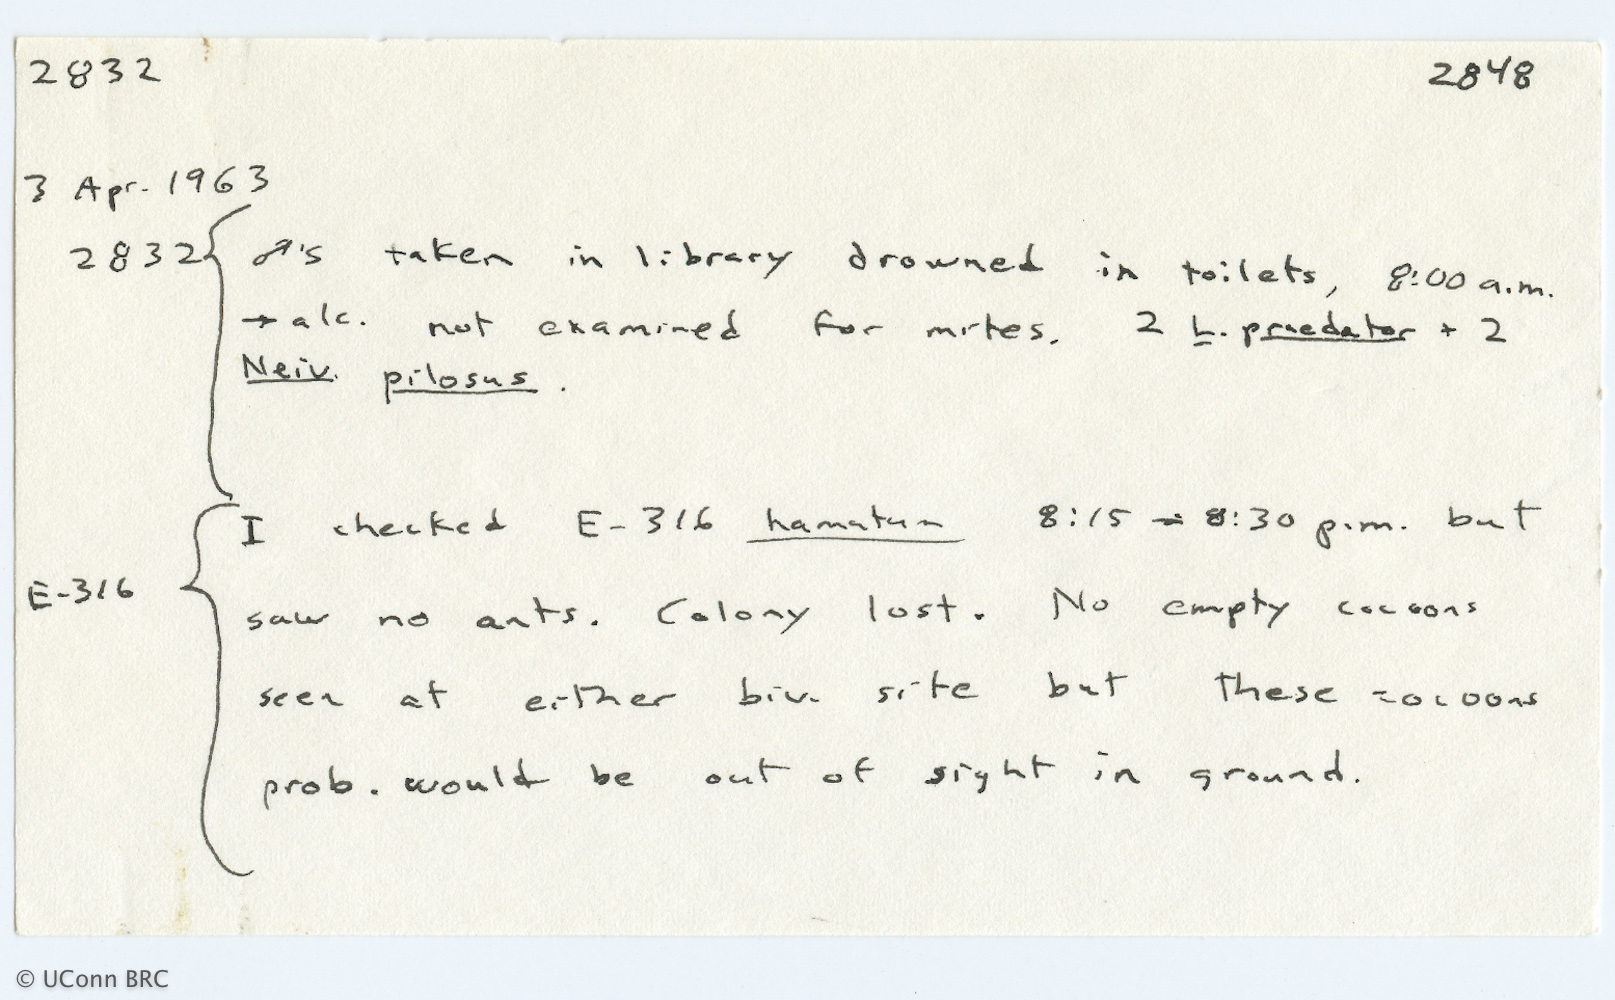 2832 2848
3 Apr. 1963
2832 ♂'s taken in library drowned in toilets, 8:00 a.m.
→ alc. not examined for mites. 2 L. praedator + 2
Neiv. pilosus.
I checked E-316 hamatum 8:15 - 8:30 p.m. but
E-316
saw no ants. Colony lost. No empty cocoons
seen at either biv. site but these cocoons
prob. would be out of sight in ground.
© UConn BRC